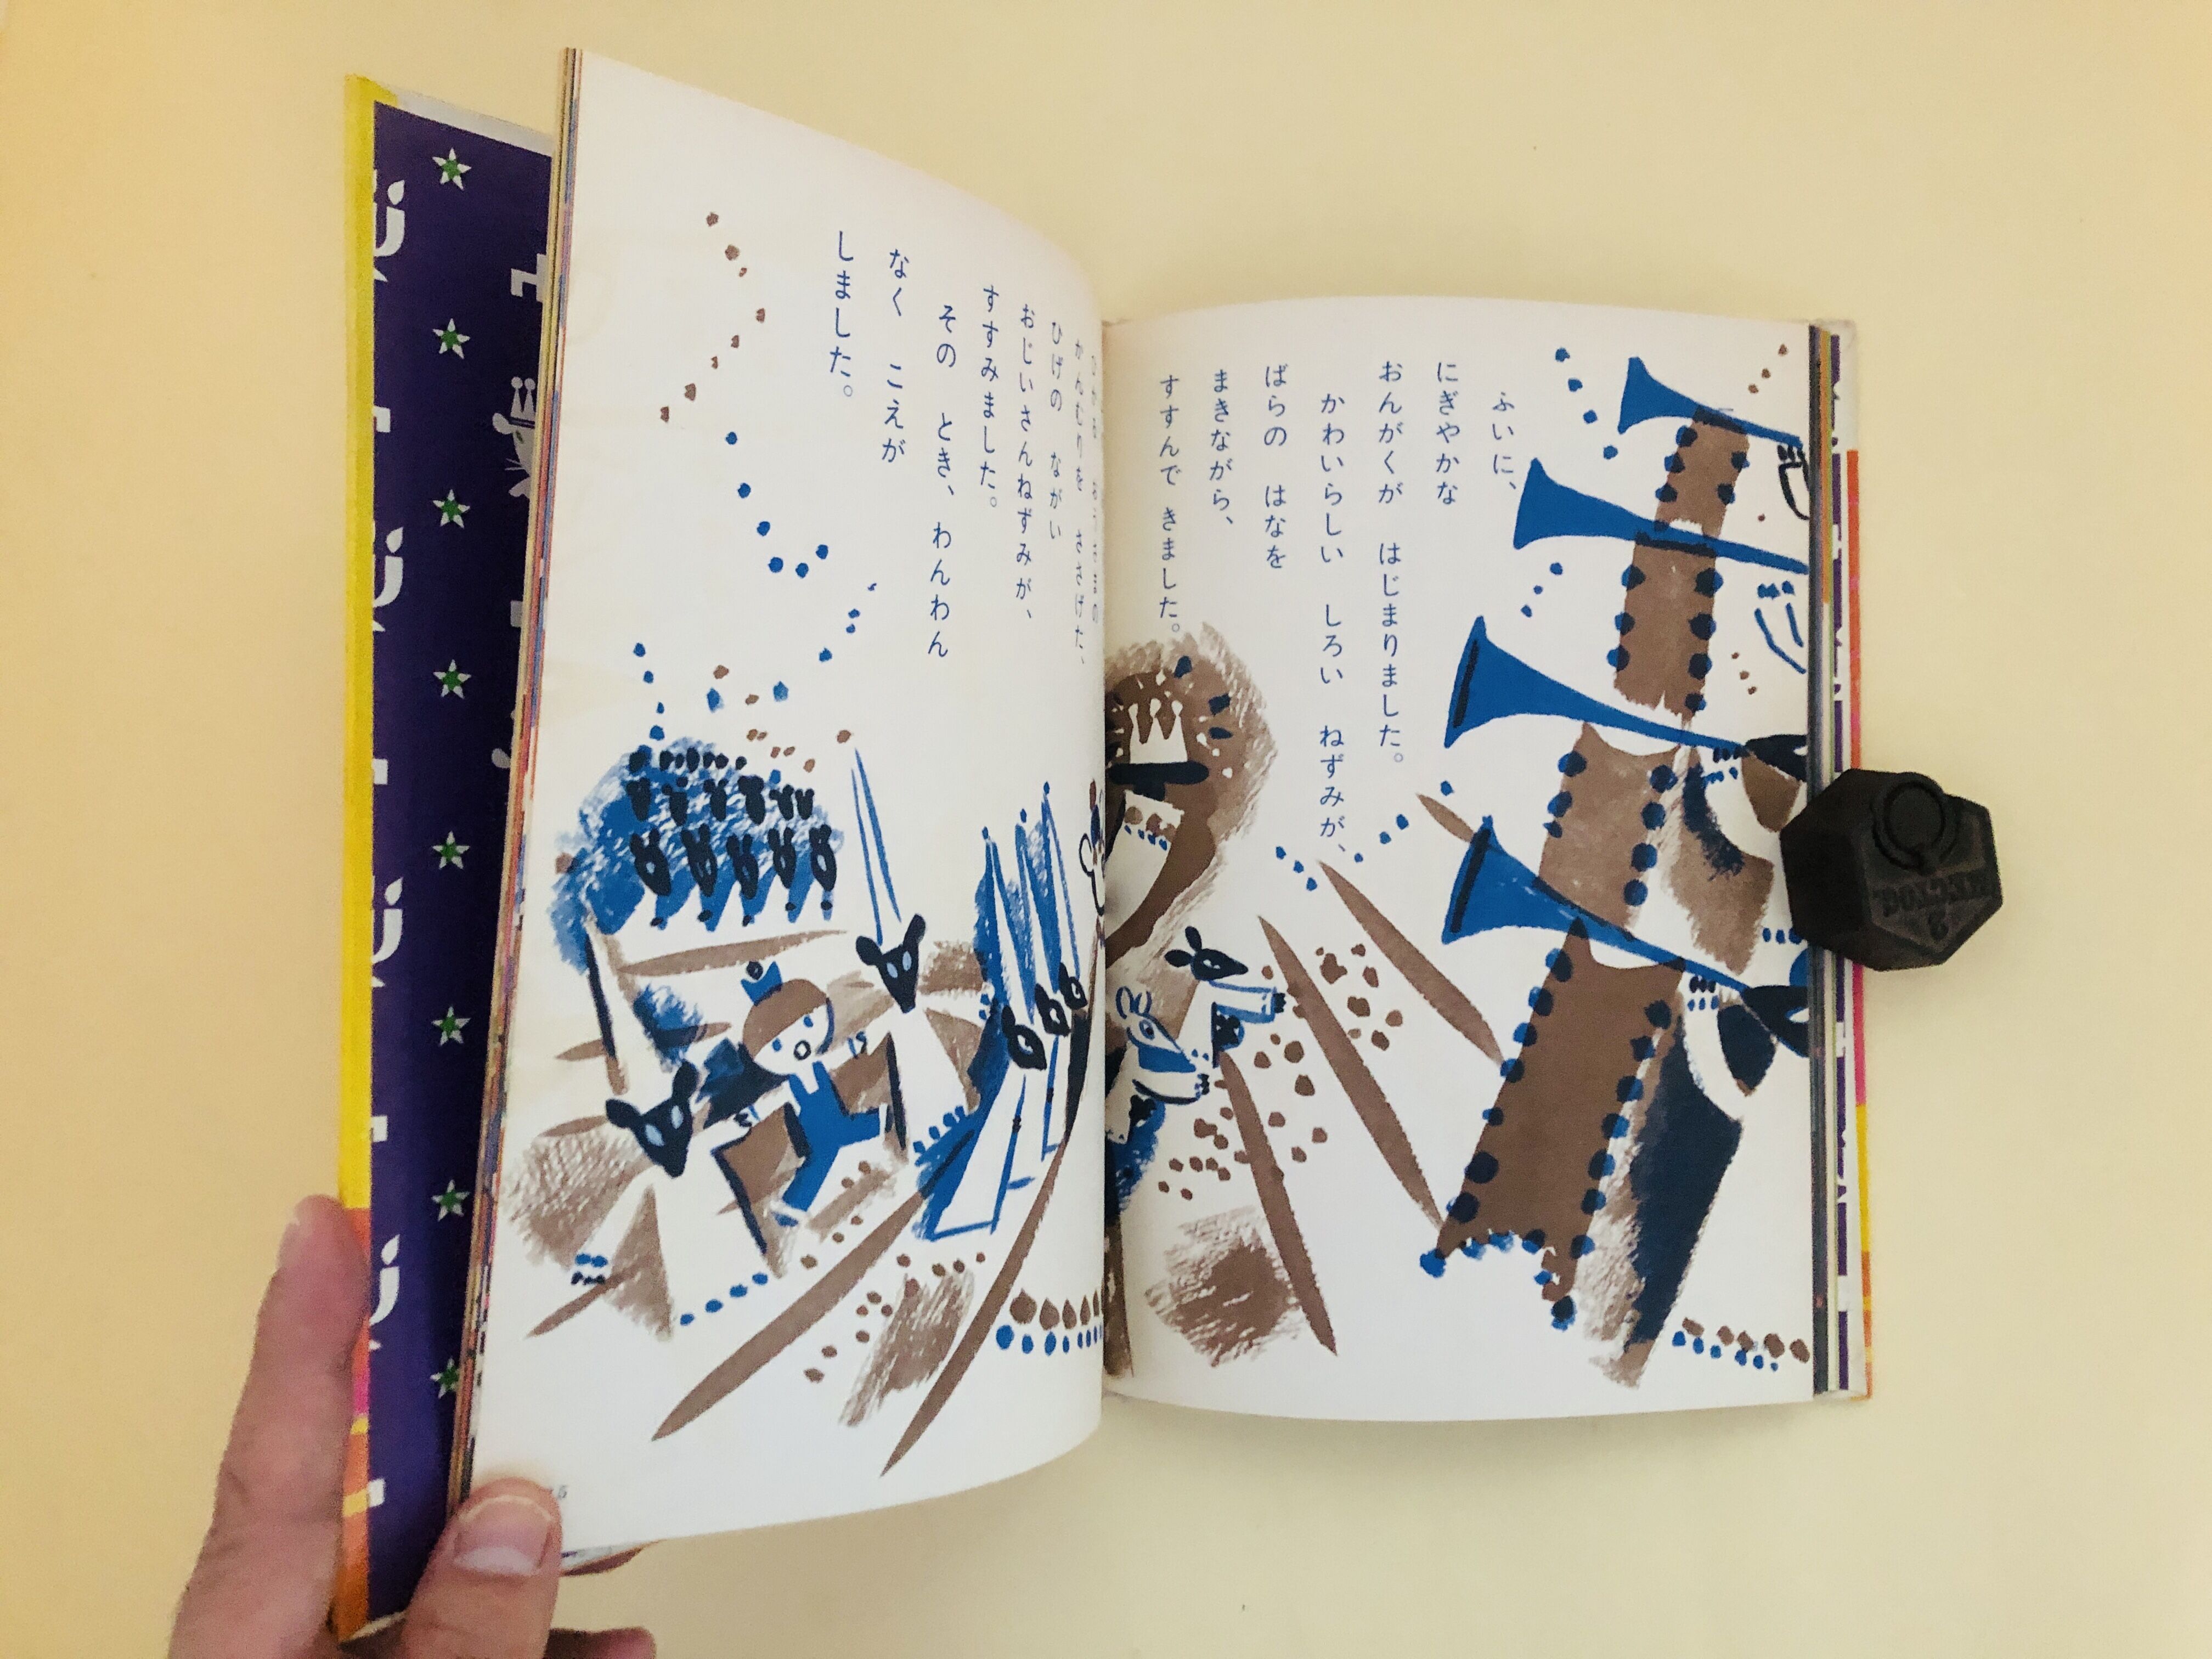 ふいに、
にぎやかな
おんがくが　はじまりました。
かわいらしい　しろい　ねずみが、
ばらの　はなを
まきながら、
すすんで　きました。
かんむりを　ささげた、
ひげの　ながい
おじいさんねずみが、
すすみました。
その　とき、わんわん
なく　こえが
しました。